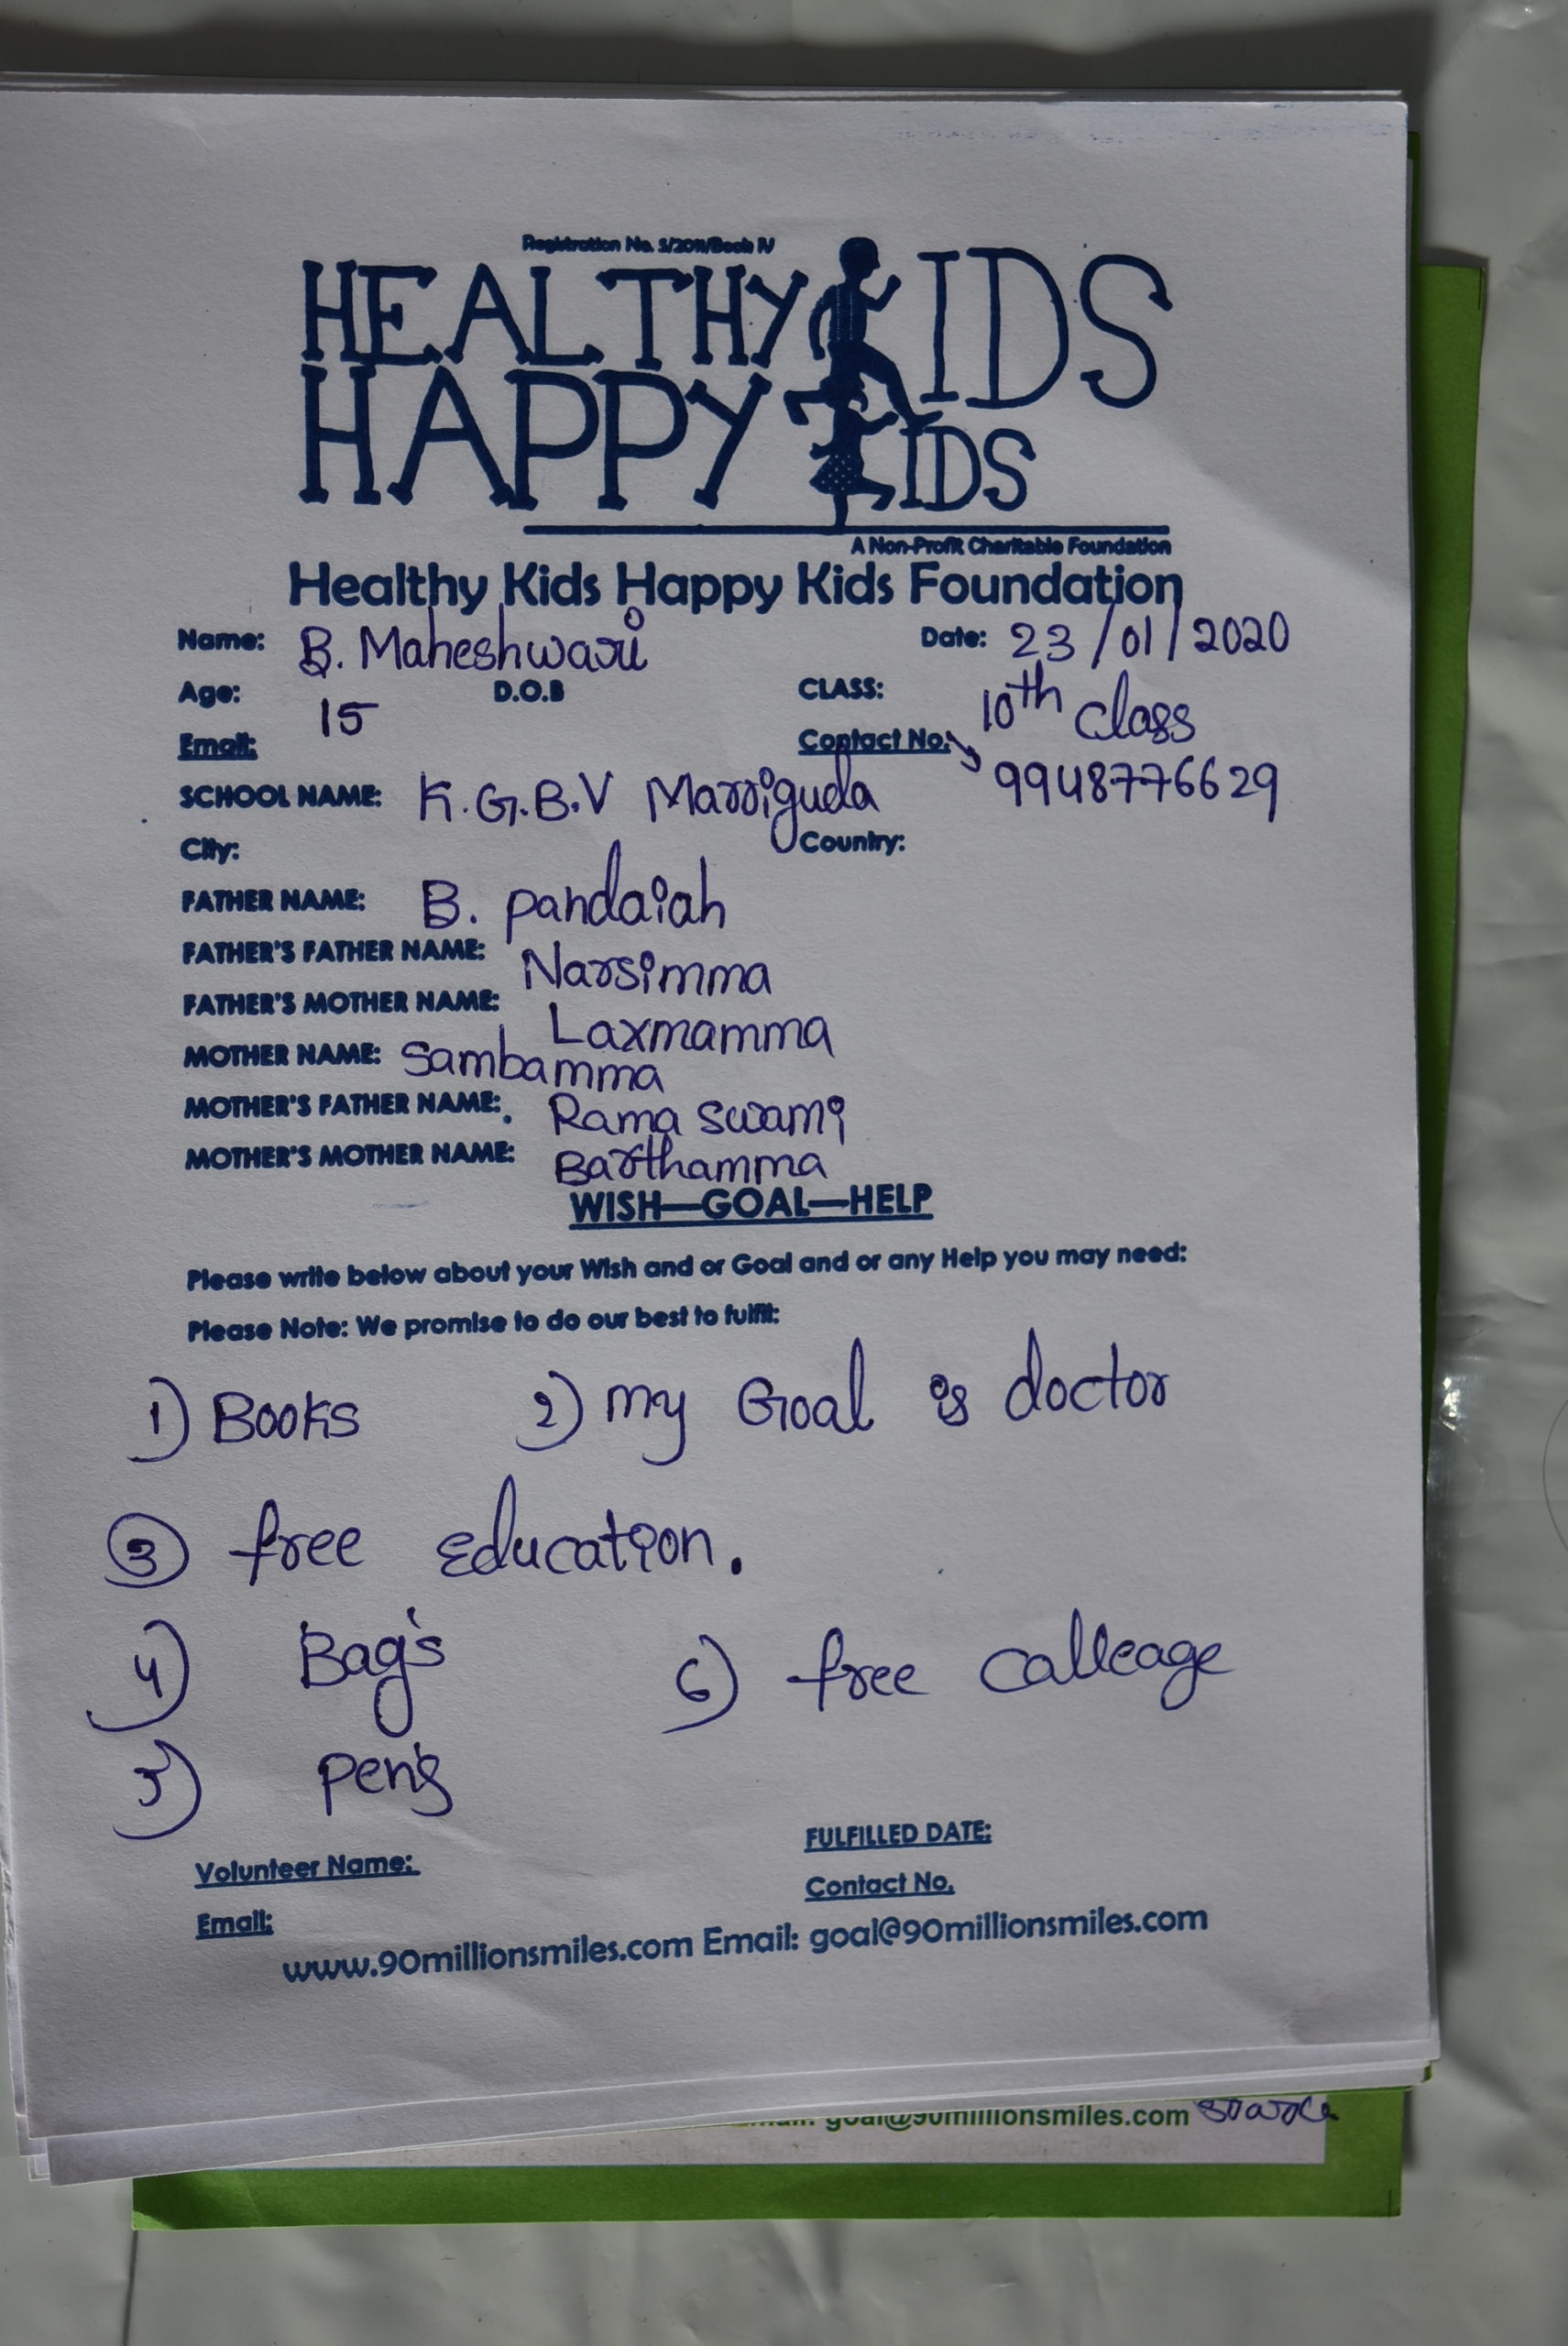 Registration No. 5/2011/Book IV
HEALTHY KIDS
HAPPY KIDS
A Non-Profit Charitable Foundation
Healthy Kids Happy Kids Foundation
Name: B. Maheshwari Date: 23/01/2020
Age: 15 D.O.B CLASS: 10th class
Email: Contact No. 9948776629
SCHOOL NAME: K.G.B.V Marriguda
City: Country:
FATHER NAME: B. pandaiah
FATHER'S FATHER NAME: Narsimma
FATHER'S MOTHER NAME: Laxmamma
MOTHER NAME: Sambamma
MOTHER'S FATHER NAME: Rama swami
MOTHER'S MOTHER NAME: Barthamma
WISH—GOAL—HELP
Please write below about your Wish and or Goal and or any Help you may need:
Please Note: We promise to do our best to fulfil:
1) Books 2) my Goal is doctor
3 free education.
4) Bag's 6) free calleage
5) pen's
FULFILLED DATE:
Volunteer Name: Contact No.
Email:
www.90millionsmiles.com Email: goal@90millionsmiles.com
goal@90millionsmiles.com